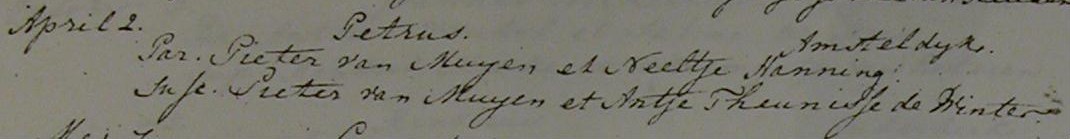 April 2. Petrus. Amsteldyk.
Par. Pieter van Muyen et Neeltje Hanning.
Susc. Pieter van Muyen et Antje Theunisse de Winter